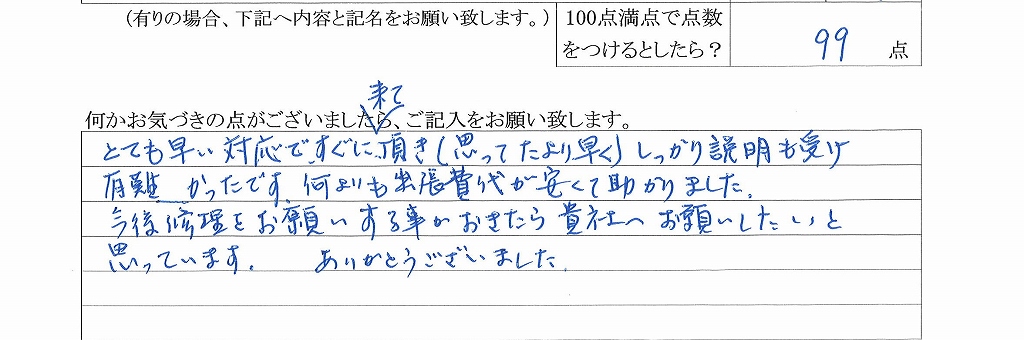 (有りの場合、下記へ内容と記名をお願い致します。)
100点満点で点数
をつけるとしたら？
99 点
何かお気づきの点がございましたら、ご記入をお願い致します。
来て
とても早い対応ですぐに頂き(思ってたより早く)しっかり説明も受け
有難かったです。何よりも出張費代が安くて助かりました。
今後修理をお願いする事がおきたら貴社へお願いしたいと
思っています。 ありがとうございました。